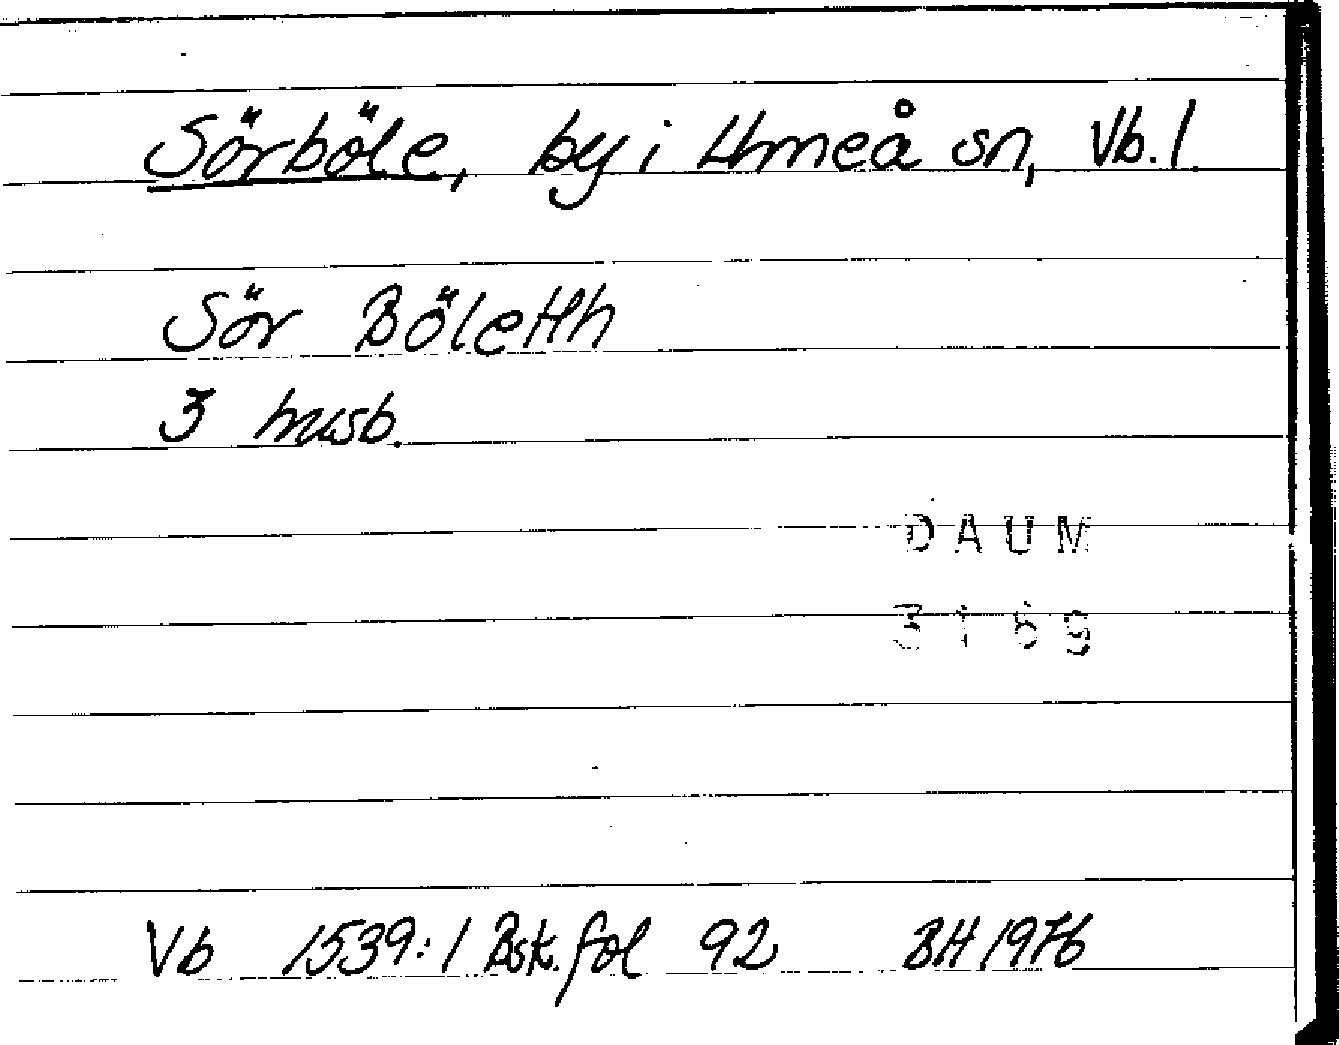 Sörböle, by i Umeå sn, Vb. l.
Sör Böletth
3 husb.
DAUM
3169
Vb 1539:1 Bsk. fol 92 BH 1976